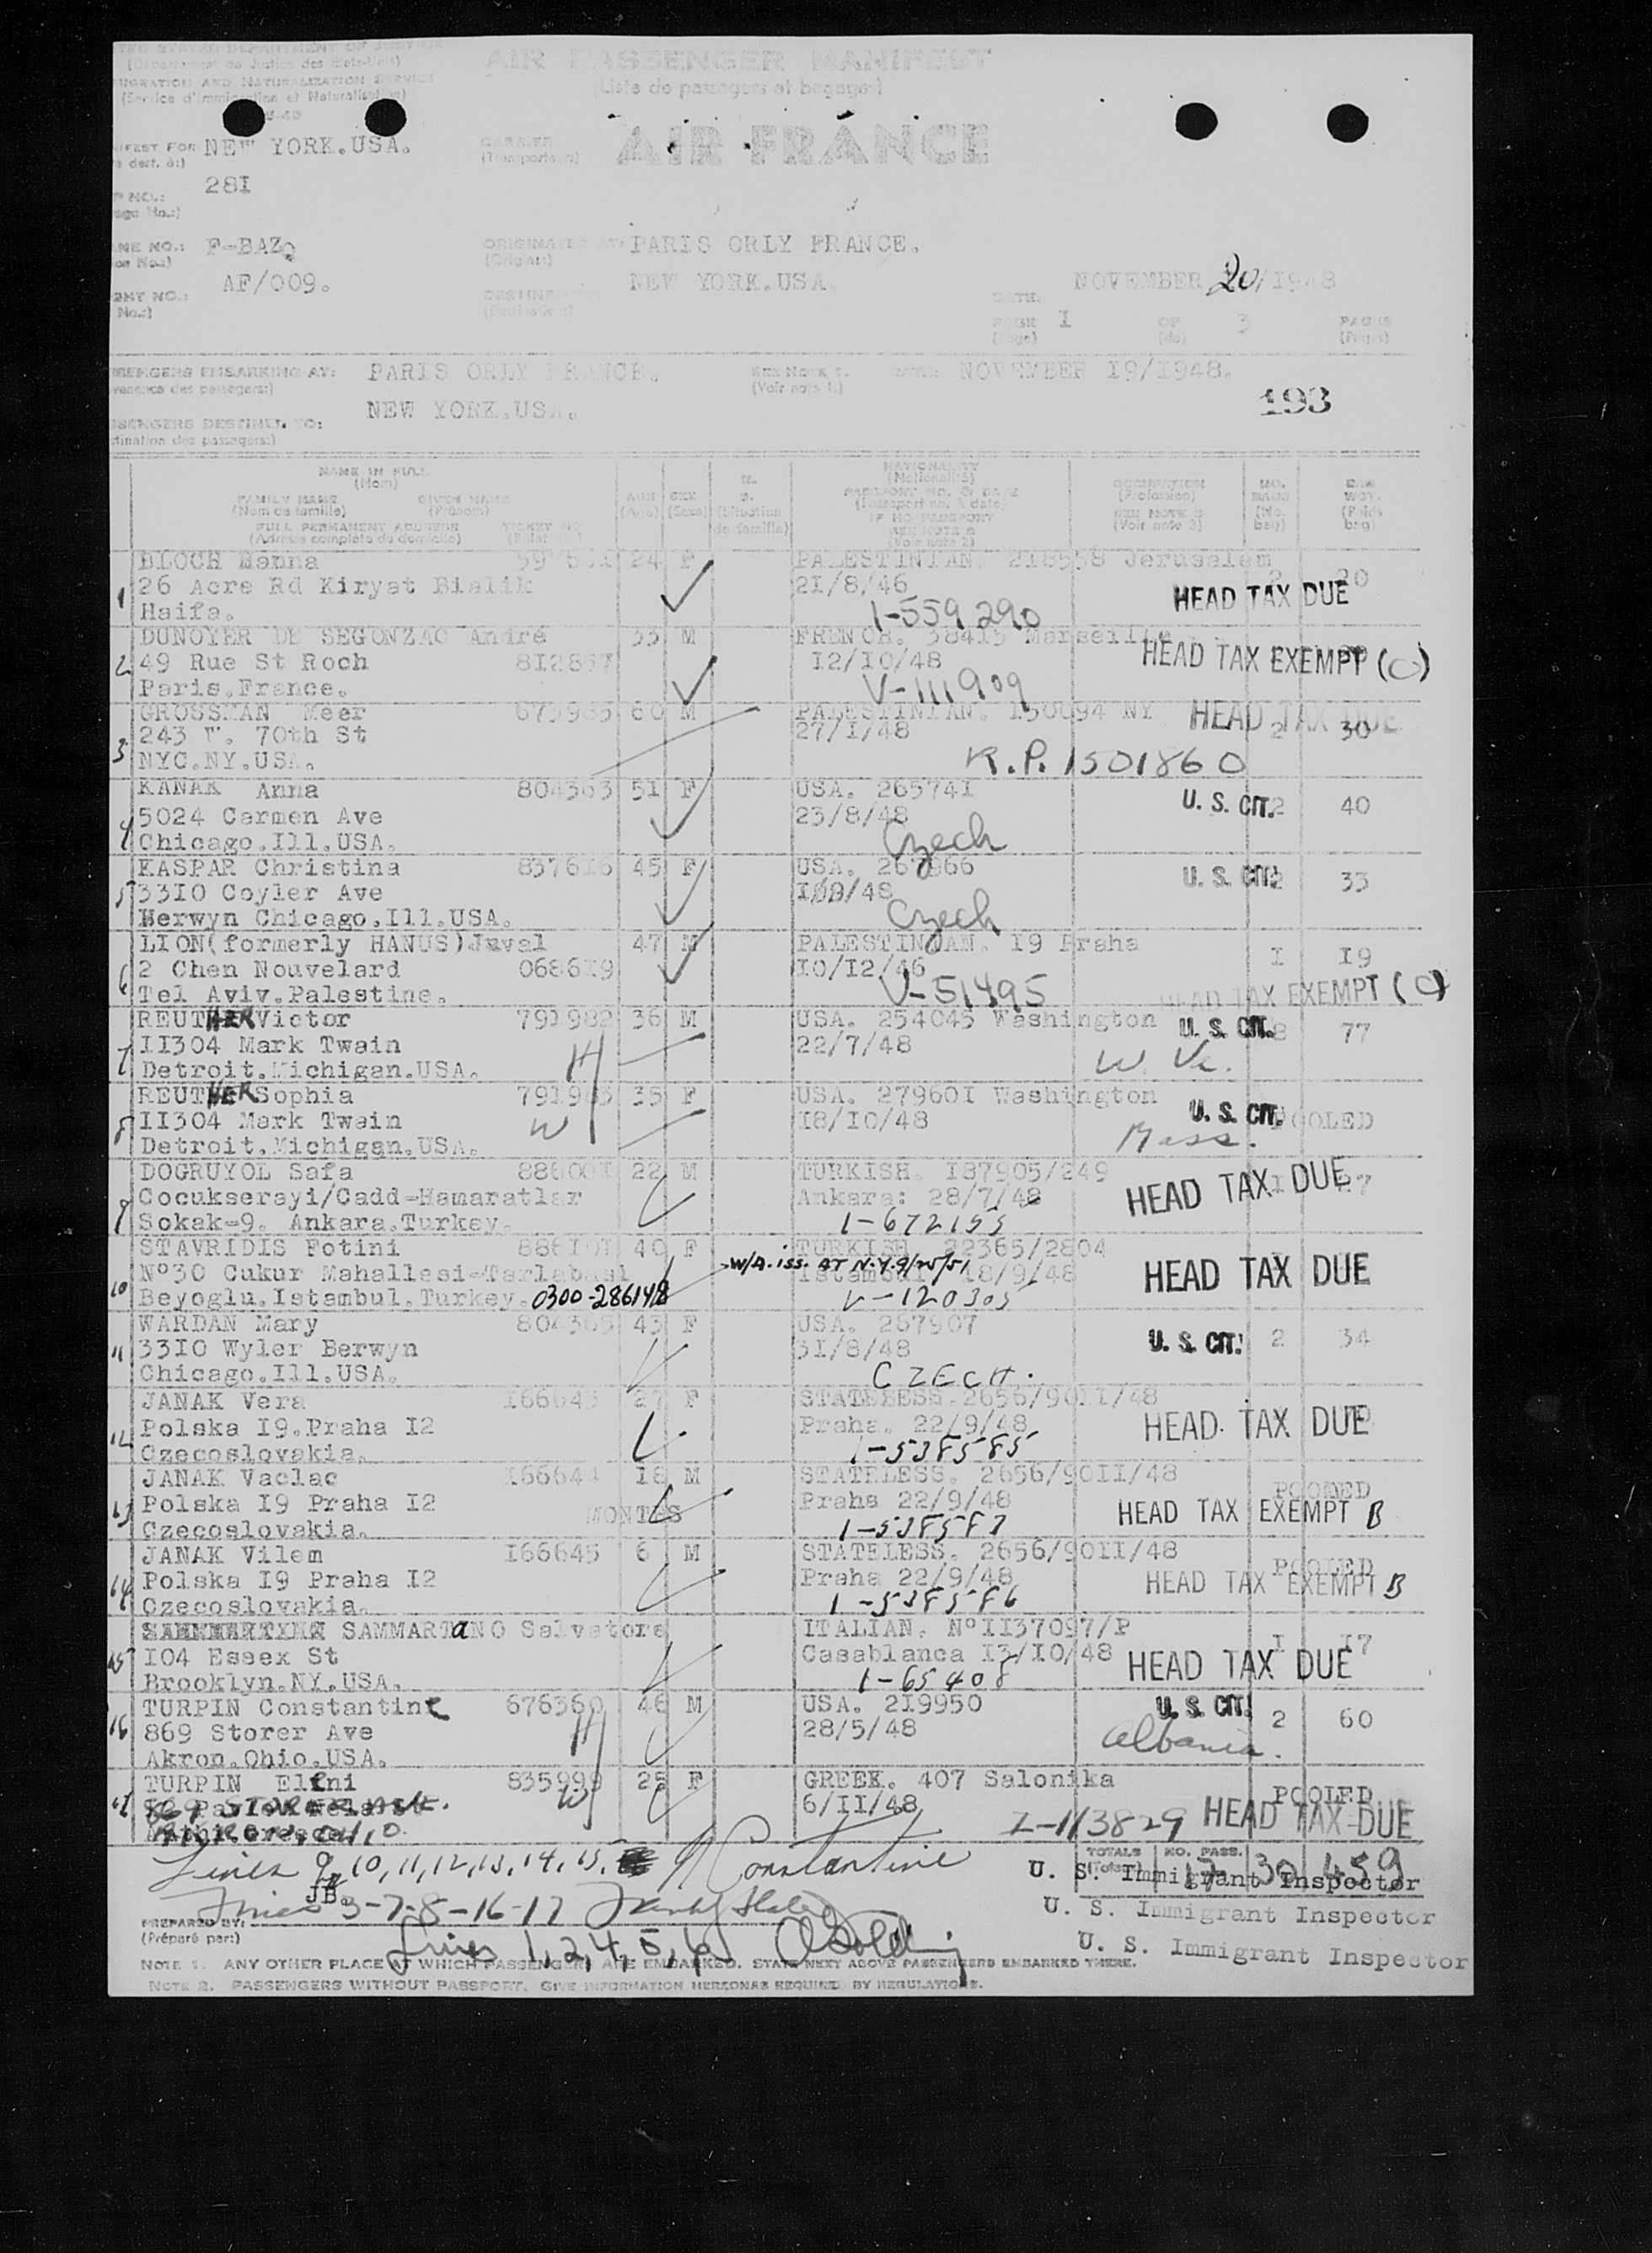 UNITED STATES DEPARTMENT OF JUSTICE
(Departement de Justice des Etats-Unis)
AIR PASSENGER MANIFEST
IMMIGRATION AND NATURALIZATION SERVICE
(Service d'immigration et Naturalisation)
(Liste de passagers et bagages)
NEW YORK.USA.
CARRIER
(Transporteur)
AIR FRANCE
28I
F-BAZQ
(Origine:)
PARIS ORLY FRANCE.
AF/009.
NEW YORK.USA.
NOVEMBER 20/1948
DATE:
PAGE I OF 3 PAGES
(Page) (de) (Pages)
PASSENGERS EMBARKING AT: PARIS ORLY FRANCE. SEE NOTE 1. DATE: NOVEMBER I9/I948.
(Voir note 1.)
193
PASSENGERS DESTINED TO: NEW YORK.USA.
(Destination des passagers:)
NAME IN FULL
(Nom)
FAMILY NAME GIVEN NAME
(Nom de famille) (Prénom)
FULL PERMANENT ADDRESS TICKET NO
(Adresse complète du domicile)
AGE SEX
(Age) (Sexe) (Situation de famille)
NATIONALITY
(Nationalité)
PASSPORT NO. OR DATE
(Passport no. & date)
IF NO PASSPORT
SEE NOTE 2
(Voir note 2)
OCCUPATION
(Profession)
SEE NOTE 3
(Voir note 3)
NO. BAGS
(No. bag)
BAG WGT.
(Poids bag)
BLOCH Hanna 24 F PALESTINIAN. 218558 Jerusalem
1 26 Acre Rd Kiryat Bialik 21/8/46 2 20 HEAD TAX DUE
Haifa. 1-559290
DUNOYER DE SEGONZAC André 33 M FRENCH. 38415 Marseille
2 49 Rue St Roch 812857 I2/IO/48 HEAD TAX EXEMPT (C)
Paris.France. V-111909
GROSSMAN Meer 60 M PALESTINIAN. NY HEAD TAX DUE
243 W. 70th St 27/I/48 2 30
3 NYC.NY.USA. R.P. 1501860
KANAK Anna 804363 51 F USA. 26574I U. S. CIT. 2 40
5024 Carmen Ave 23/8/48
4 Chicago.Ill.USA. Czech
KASPAR Christina 837616 45 F USA. 267966 U. S. CIT. 2 33
5 33IO Coyler Ave /48
Berwyn Chicago.Ill.USA. Czech
LION(formerly HANUS)Juval 47 M PALESTINIAN. I9 Praha I I9
2 Chen Nouvelard 068619 IO/I2/46
6 Tel Aviv.Palestine. V-51495 HEAD TAX EXEMPT (C)
REUTHER Victor 791982 36 M USA. 254045 Washington U. S. CIT. 8 77
II304 Mark Twain H 22/7/48
7 Detroit.Michigan.USA. W. Va.
REUTHER Sophia 791983 35 F USA. 27960I Washington U. S. CIT. POOLED
8 II304 Mark Twain W I8/IO/48
Detroit.Michigan.USA. Mass.
DOGRUYOL Safa 88600I 22 M TURKISH. I87905/249
Cocukserayi/Cadd-Hamaratlar Ankara: 28/7/48 HEAD TAX DUE I 27
9 Sokak-9. Ankara.Turkey. 1-672155
STAVRIDIS Fotini 40 F TURKISH 22365/2804
Nº30 Cukur Mahallesi-Tarlabasi W/A. iss. AT N.Y. 9/25/51 Istambul I8/9/48 HEAD TAX DUE
10 Beyoglu.Istambul.Turkey. 0300-286148 V-120305
WARDAN Mary 804365 43 F USA. 267907
11 33IO Wyler Berwyn 3I/8/48 U. S. CIT. 2 34
Chicago.Ill.USA. CZECH.
JANAK Vera I66643 27 F STATELESS.2656/90II/48
12 Polska I9.Praha I2 Praha. 22/9/48 HEAD TAX DUE
Czecoslovakia. 1-538585
JANAK Vaclac I66644 I8 M STATELESS. 2656/90II/48 POOLED
13 Polska I9 Praha I2 MONTHS Praha 22/9/48 HEAD TAX EXEMPT B
Czecoslovakia. 1-538587
JANAK Vilem I66645 6 M STATELESS. 2656/90II/48 POOLED
14 Polska I9 Praha I2 Praha 22/9/48 HEAD TAX EXEMPT B
Czecoslovakia. 1-538586
SAMMARTANO Salvatore ITALIAN. NºII37097/P
15 I04 Essex St Casablanca I3/IO/48 I I7 HEAD TAX DUE
Brooklyn.NY.USA. 1-65408
TURPIN Constantine 676360 46 M USA. 2I9950 U. S. CIT.
16 869 Storer Ave H 28/5/48 2 60
Akron.Ohio.USA. Albania.
TURPIN Eleni 835999 28 F GREEK. 407 Salonika
17 869 STORER AVE. W 6/II/48 POOLED
AKRON, OHIO. I-113829 HEAD TAX DUE
Lines 9, 10, 11, 12, 13, 14, 15, Constantine
TOTALS NO. PASS. 17 30 459
U. S. Immigrant Inspector
JB.
Lines 3-7-8-16-17
U. S. Immigrant Inspector
PREPARED BY:
(Préparé par:)
Lines 1, 2, 4, 5, 6,
U. S. Immigrant Inspector
NOTE 1. ANY OTHER PLACE AT WHICH PASSENGERS ARE EMBARKED. STATE NEXT ABOVE PASSENGERS EMBARKED THERE.
NOTE 2. PASSENGERS WITHOUT PASSPORT. GIVE INFORMATION HEREON AS REQUIRED BY REGULATIONS.